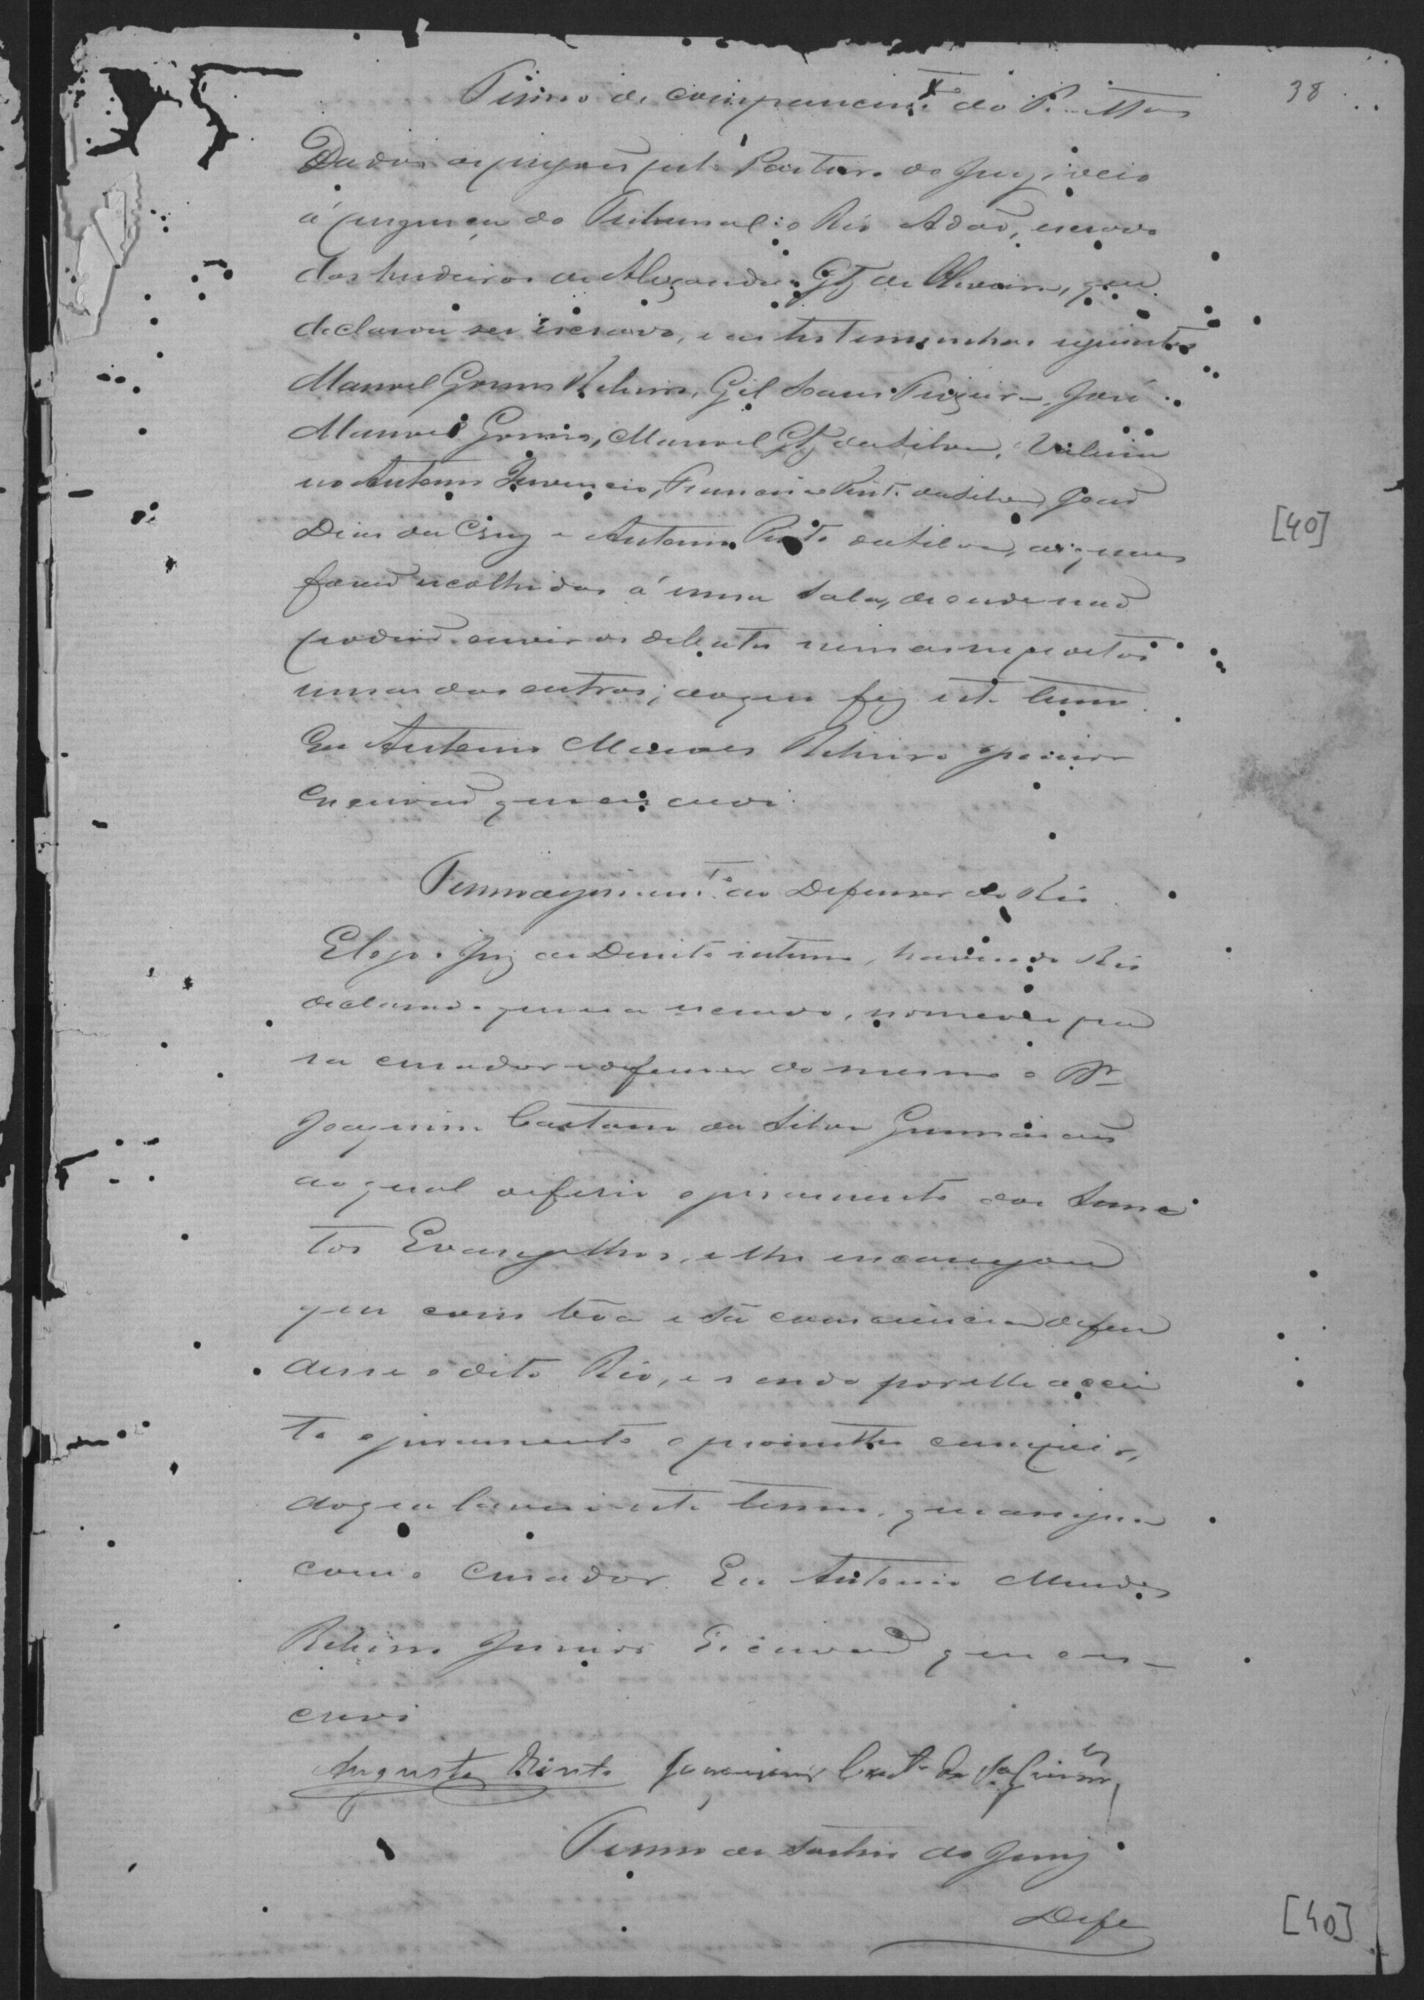 38
Termo de comparecim.to do R. e Tes
Dados os pregões pelo Porteiro do Jury, veio
á presença do Tribunal o Réo Adão, escravo
dos herdeiros de Alexandre Glz de Oliveira, que
declarou ser escravo, e as testemunhas seguintes
Manoel Gomes Ribeiro, Gil Teixeira, José
Manoel Gomes, Manoel Glz da Silva, Valeria
no Antonio Juvencio, Francisco Pinto da Silva, João
Dias da Cruz e Antonio Pinto da Silva, as quaes
forão recolhidas á uma sala, de onde não
podião ouvir os debates nem as respostas
umas das outras; do que fez este termo.
Eu Antonio Mendes Ribeiro Junior
Escrivão que escrevi.
Termo de juram.to ao Defensor do Réo
E logo o Juiz de Direito interino, havendo o Réo
declarado que era escravo, nomeou pa
ra curador e defensor do mesmo o Dr
Joaquim Caetano da Silva Guimarães
ao qual deferio o juramento dos Sanc
tos Evangelhos, e lhe encarregou
que com bôa e sã consciencia defen
desse o dito Réo, e sendo por elle accei
to o juramento o prometteu cumprir,
do que lavrei este termo, que assigna
com o Curador. Eu Antonio Mendes
Ribeiro Junior Escrivão que es-
crevi
Augusto Pinto Joaquim Caet.o da S.a Guim.es
Termo de Sorteio do Jury
Defe
[40]
[40]